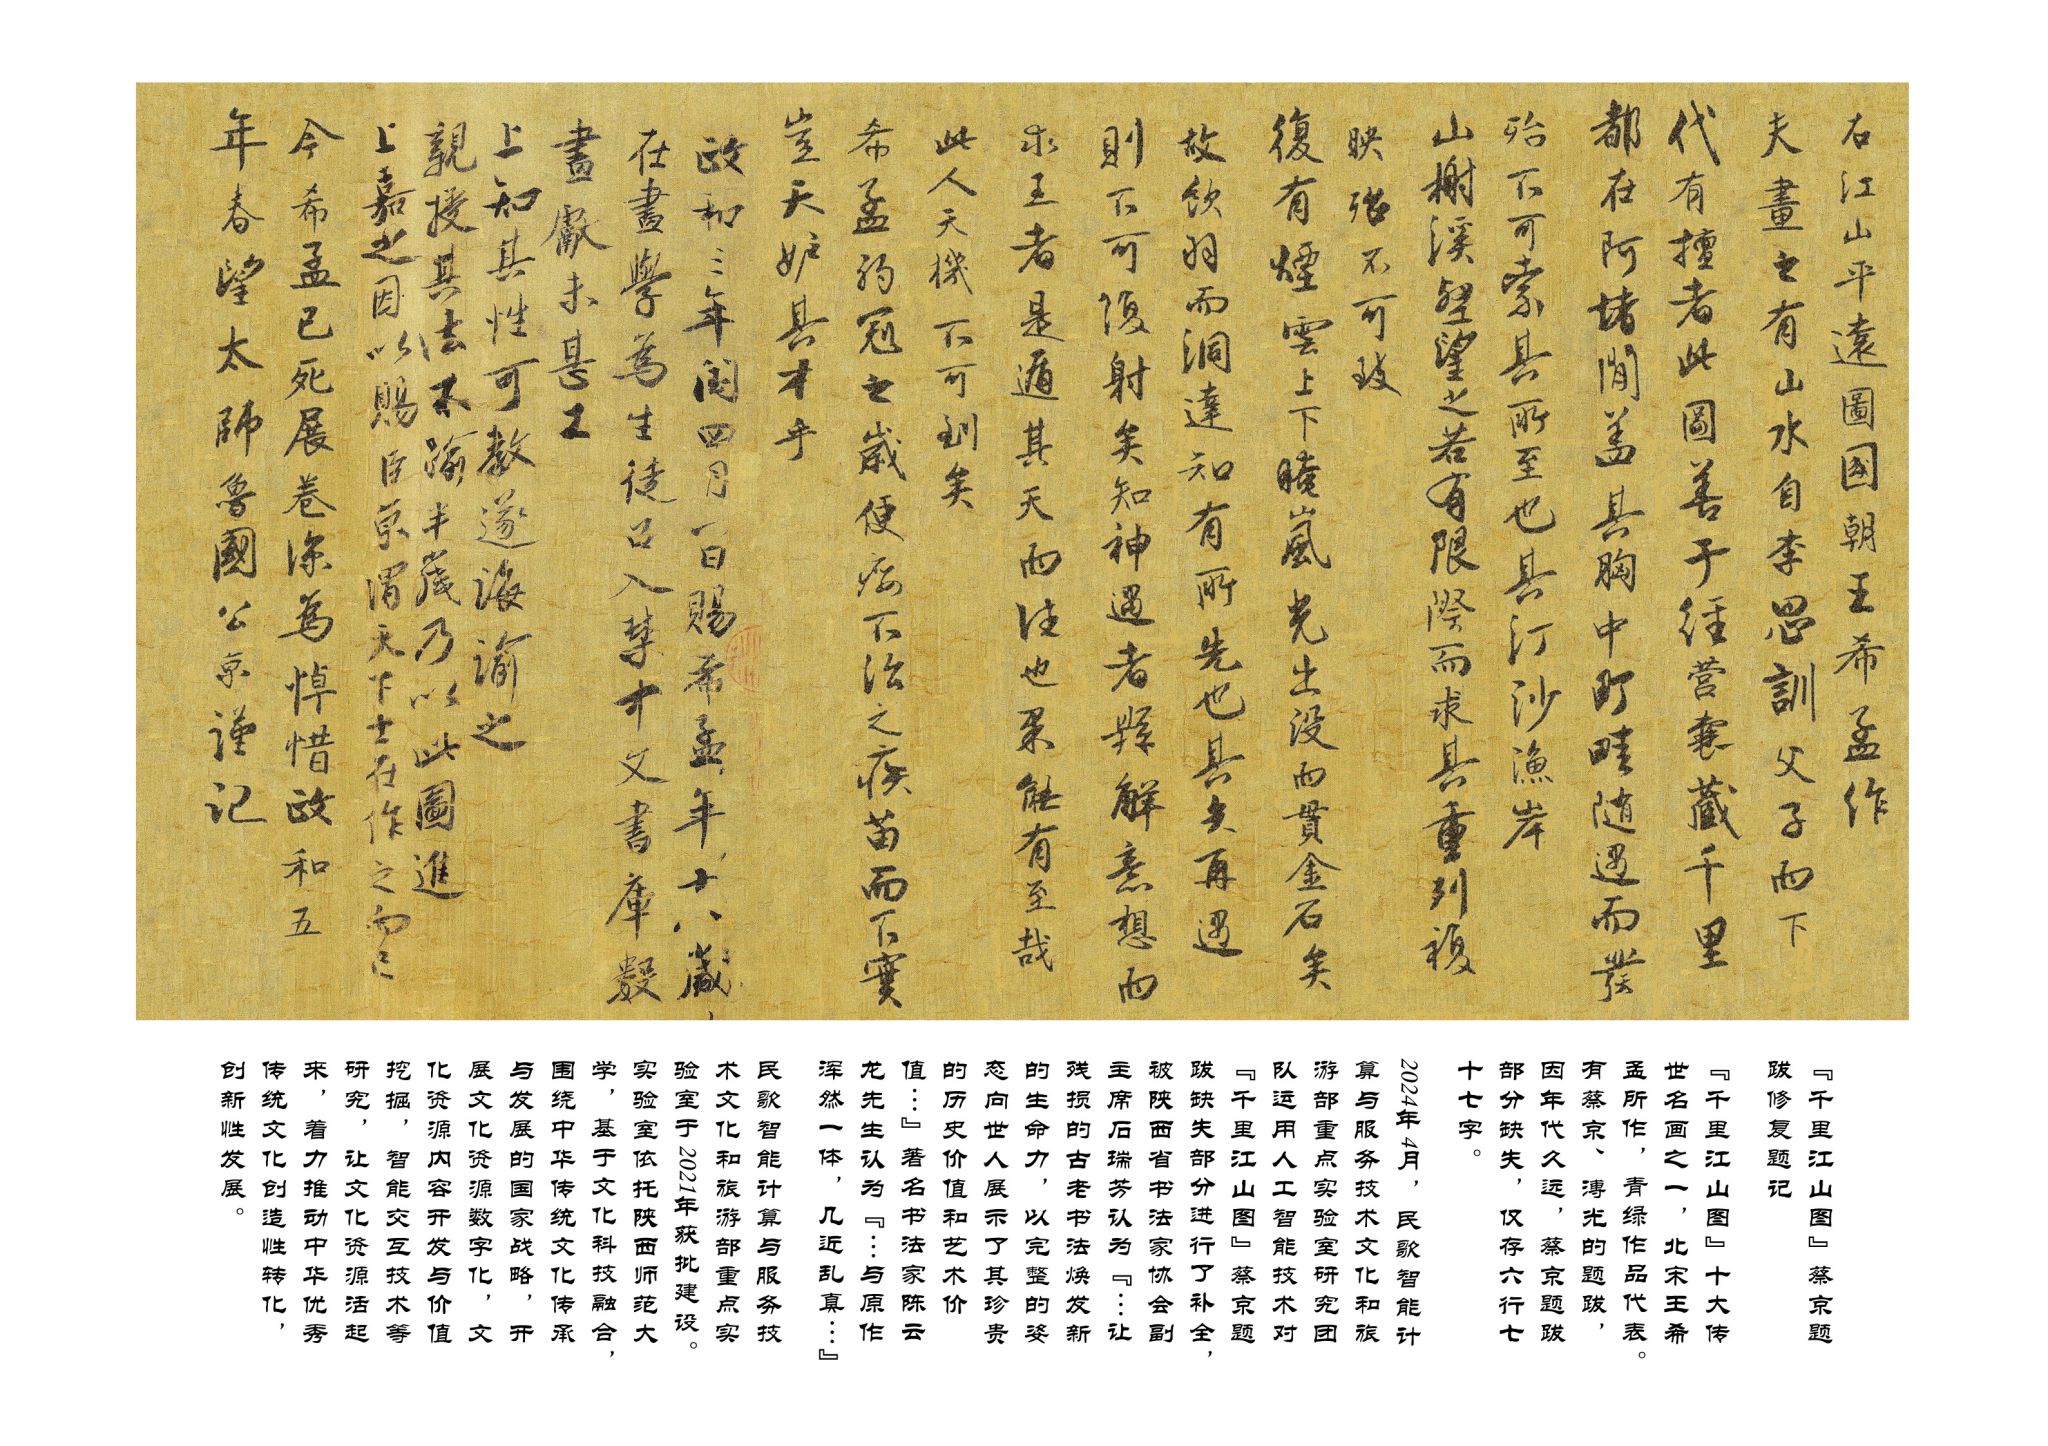 右江山平遠圖國朝王希孟作
夫畫之有山水自李思訓父子而下
代有擅者此圖善于經營囊藏千里
都在阿堵間蓋其胸中町畦随遇而發
殆不可索其所至也其汀沙漁岸
山榭溪壑望之若有限際而求其重列複
映張不可
復有煙雲上下晻嵐光出没而貫金石矣
故飲羽而洞達知有所先也其矢再遇
則不可復射矣知神遇者釋解意想而
求王者是遁其天而注也果能有至哉
此人天機不可到矣
希孟弱冠之歲便不治之疾苗而不實
豈天妒其才乎
政和三年閏四月一日賜希孟年十八歲
在畫學為生徒召入禁中文書庫數
畫獻未甚工
上知其性可教遂誨諭之
親授其法不踰半歲乃以此圖進
上嘉之因以賜臣京謂天下士在作之而已
今希孟已死展卷深為悼惜政和五
年春望太師魯國公京謹記
『千里江山图』蔡京题
跋修复题记
『千里江山图』十大传
世名画之一，北宋王希
孟所作，青绿作品代表。
有蔡京、溥光的题跋，
因年代久远，蔡京题跋
部分缺失，仅存六行七
十七字。
2024年4月，民歌智能计
算与服务技术文化和旅
游部重点实验室研究团
队运用人工智能技术对
『千里江山图』蔡京题
跋缺失部分进行了补全，
被陕西省书法家协会副
主席石瑞芳认为『…让
残损的古老书法焕发新
的生命力，以完整的姿
态向世人展示了其珍贵
的历史价值和艺术价
值…』著名书法家陈云
龙先生认为『…与原作
浑然一体，几近乱真…』
民歌智能计算与服务技
术文化和旅游部重点实
验室于2021年获批建设。
实验室依托陕西师范大
学，基于文化科技融合，
围绕中华传统文化传承
与发展的国家战略，开
展文化资源数字化，文
化资源内容开发与价值
挖掘，智能交互技术等
研究，让文化资源活起
来，着力推动中华优秀
传统文化创造性转化，
创新性发展。